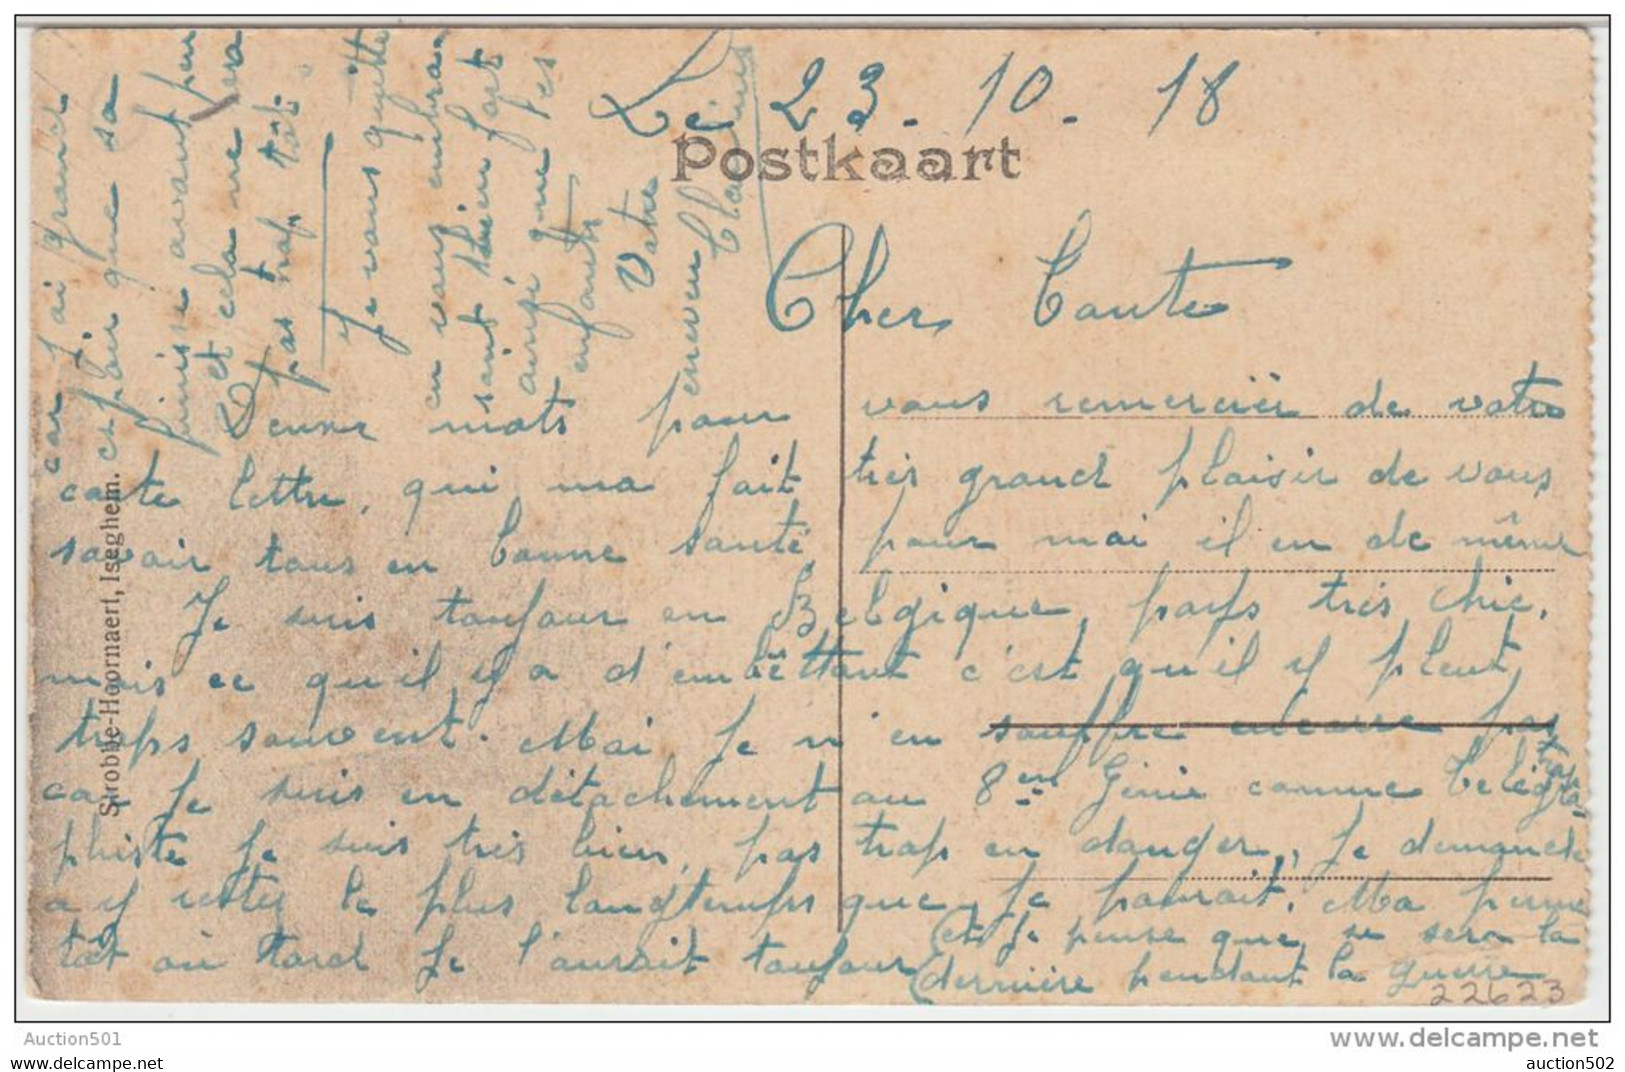 Le 23-10-18
Postkaart
Cher Tante
Deux mots pour vous remercier de votre
carte lettre, qui ma fait très grand plaisir de vous
savoir tous en bonne santé, pour moi il en de même
Je suis toujour en Belgique, pays très chic,
mais ce qu'il y a d'embêttant c'est qu'il y pleut
trops souvent. Moi je n'en souffre encore pas trop
car je suis en détachement au 8em Génie comme telégra-
phiste je suis très bien, pas trop en danger, je demande
a y rester le plus longtemps que je pourait. Ma perme
tôt ou tard je l'aurait toujour
(et je pense que se sera la
dernière pendant la guerre
car j'ai grand
et pour que sa
finisse avant peu
et cela ne sera
pas trop tôt.
Je vous quitte
en vous embras
sant bien fort
ainsi que les
enfants
Votre
neveu
Sirobbe-Hoornaert, Iseghem.
22623
Auction501
www.delcampe.net
posted by
auction502